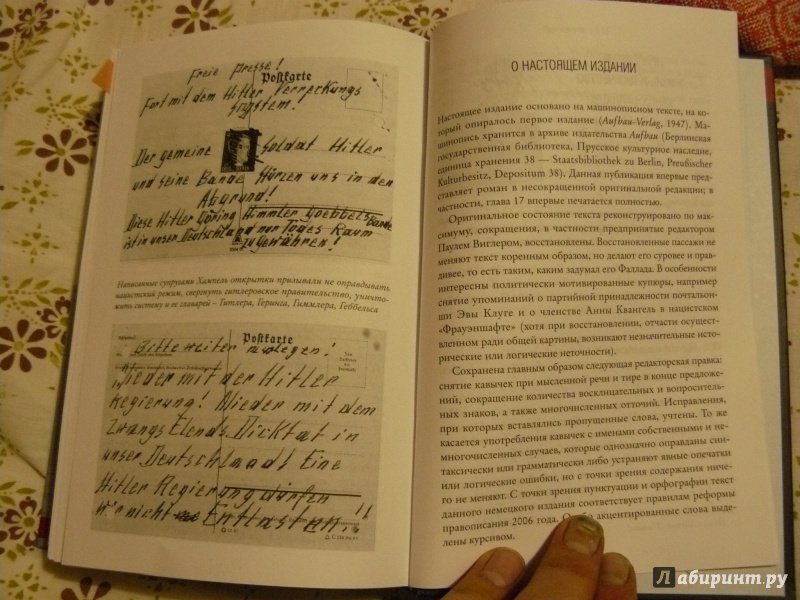 Freie Presse!
Postkarte
Fort mit dem Hitler Verreckungs
System!
Der gemeine Soldat Hitler
und seine Bande stürzen uns in den
Abgrund!
Diese Hitler Göring Himmler Goebbels Bande
ist in unser Deutschland nur Todes Raum
zu gewähren!
Написанные супругами Хампель открытки призывали не оправдывать
нацистский режим, свернуть гитлеровское правительство, уничто-
жить систему и ее главарей – Гитлера, Геринга, Гиммлера, Геббельса
Postkarte
Bitte weiter zulegen!
Nieder mit der Hitler
Regierung! Nieder mit dem
Zwangs Elends Dicktat in
unser Deutschland! Eine
Hitler Regierung dürfen
wir nicht Entlasten!!
О НАСТОЯЩЕМ ИЗДАНИИ
Настоящее издание основано на машинописном тексте, на ко-
торый опиралось первое издание (Aufbau-Verlag, 1947). Ма-
шинопись хранится в архиве издательства Aufbau (Берлинская
государственная библиотека, Прусское культурное наследие,
единица хранения 38 — Staatsbibliothek zu Berlin, Preußischer
Kulturbesitz, Depositum 38). Данная публикация впервые пред-
ставляет роман в несокращенной оригинальной редакции; в
частности, глава 17 впервые печатается полностью.
Оригинальное состояние текста реконструировано по мак-
симуму, сокращения, в частности предпринятые редактором
Паулем Виглером, восстановлены. Восстановленные пассажи не
меняют текст коренным образом, но делают его суровее и прав-
дивее, то есть таким, каким задумал его Фаллада. В особенности
интересны политически мотивированные купюры, например
снятие упоминаний о партийной принадлежности почтальон-
ши Эвы Клуге и о членстве Анны Квангель в нацистском
«Фрауэншафте» (хотя при восстановлении, отчасти осуществ-
ленном ради общей картины, возникают незначительные исто-
рические или логические неточности).
Сохранена главным образом следующая редакторская правка:
снятие кавычек при мысленной речи и тире в конце предложе-
ний, сокращение количества восклицательных и вопроситель-
ных знаков, а также многочисленных отточий. Исправления,
при которых вставлялись пропущенные слова, учтены. То же
касается употребления кавычек с именами собственными и не-
многочисленных случаев, которые однозначно оправданы син-
таксически или грамматически либо устраняют явные опечатки
или логические ошибки, но с точки зрения содержания ниче-
го не меняют. С точки зрения пунктуации и орфографии текст
данного немецкого издания соответствует правилам реформы
правописания 2006 года. акцентированные слова выде-
лены курсивом.
Лабиринт.ру